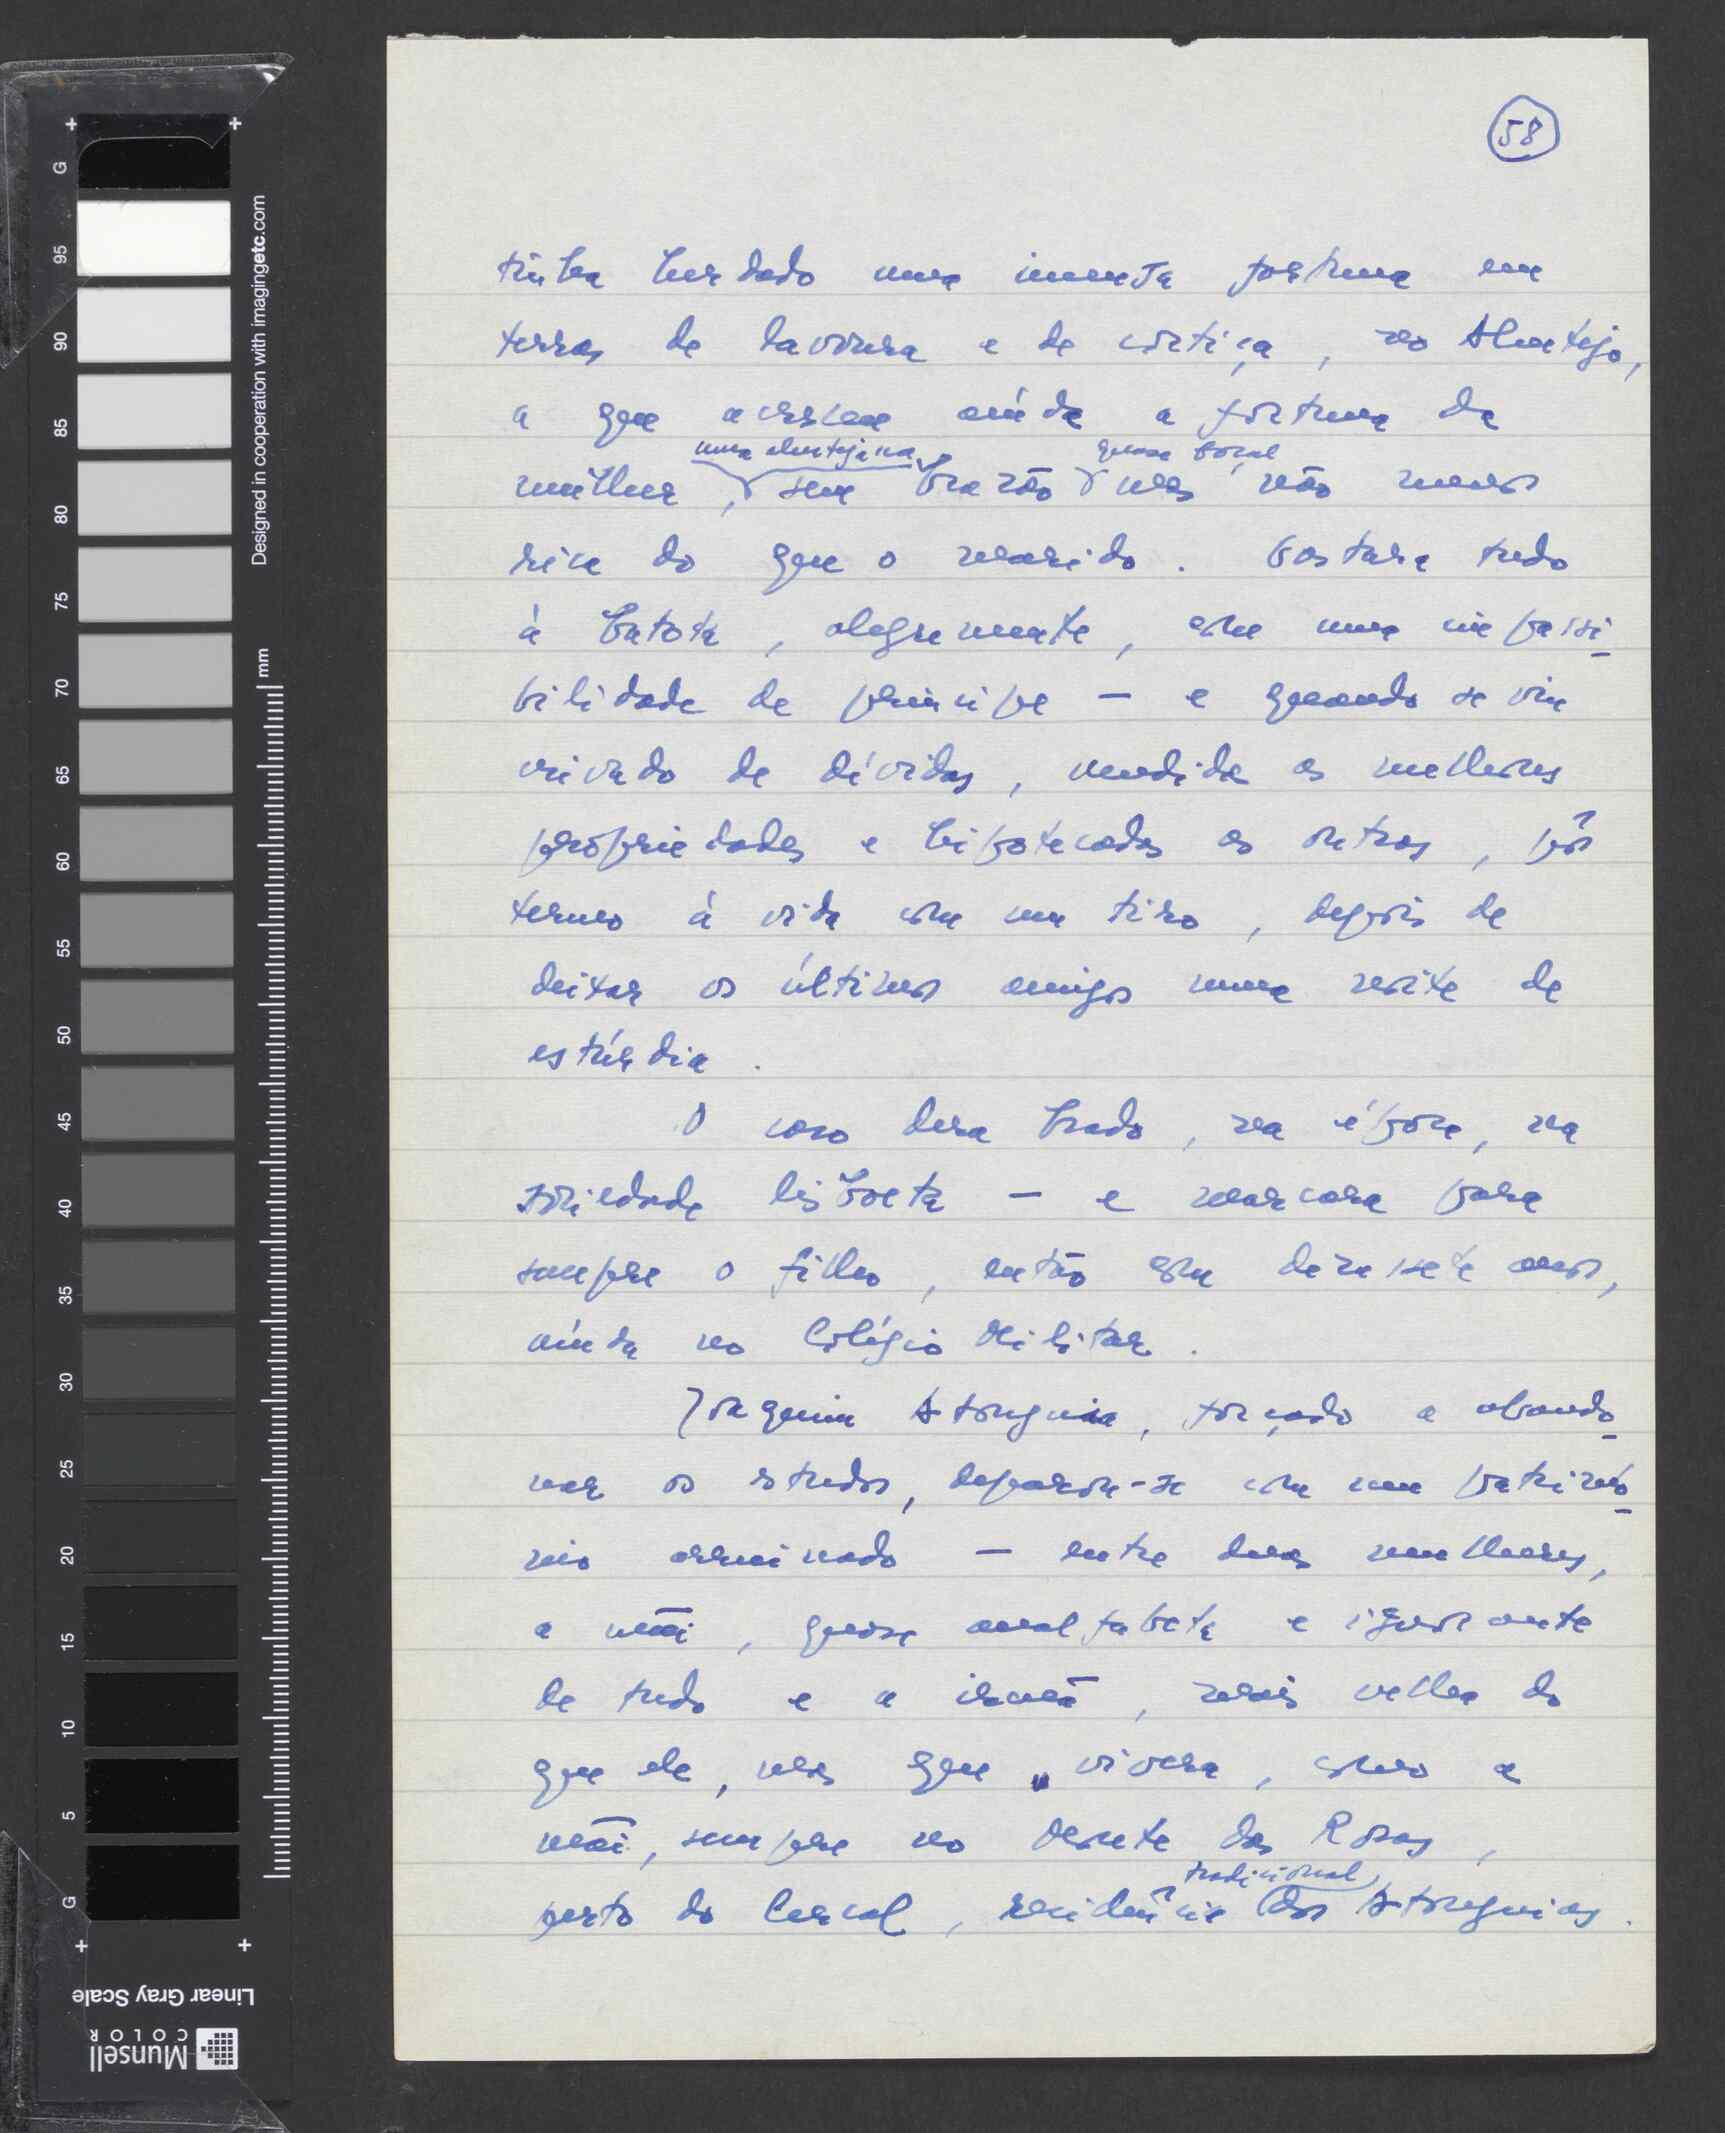 58
tinha herdado uma imensa fortuna em
terras de lavoura e de cortiça, no Alentejo,
a que acresceu ainda a fortuna da
uma alentejana, quase boçal
mulher, sem brazão mas não menos
rica do que o marido. Gastara tudo
à batota, alegremente, com uma impassi-
bilidade de príncipe — e quando se viu
crivado de dívidas, vendidas as melhores
propriedades e hipotecadas as outras, pôs
termo à vida com um tiro, depois de
deixar os últimos amigos numa noite de
estúrdia.
O caso dera brado, na época, na
sociedade lisboeta — e marcara para
sempre o filho, então com dezassete anos,
ainda no Colégio Militar.
Joaquim Atouguia, forçado a abando-
nar os estudos, deparou-se com um patrimó-
nio arruinado — entre duas mulheres,
a mãi, quase analfabeta e ignorante
de tudo e a irmã, mais velha do
que ele, mas que vivera, como a
mãi, sempre no Monte das Rosas,
tradicional
perto do Cercal, residência dos Atouguias.
Designed in cooperation with imagingetc.com
mm
G 95 90 85 80 75 70 65 60 55 50 45 40 35 30 25 20 15 10 5 G
Linear Gray Scale
Munsell
COLOR